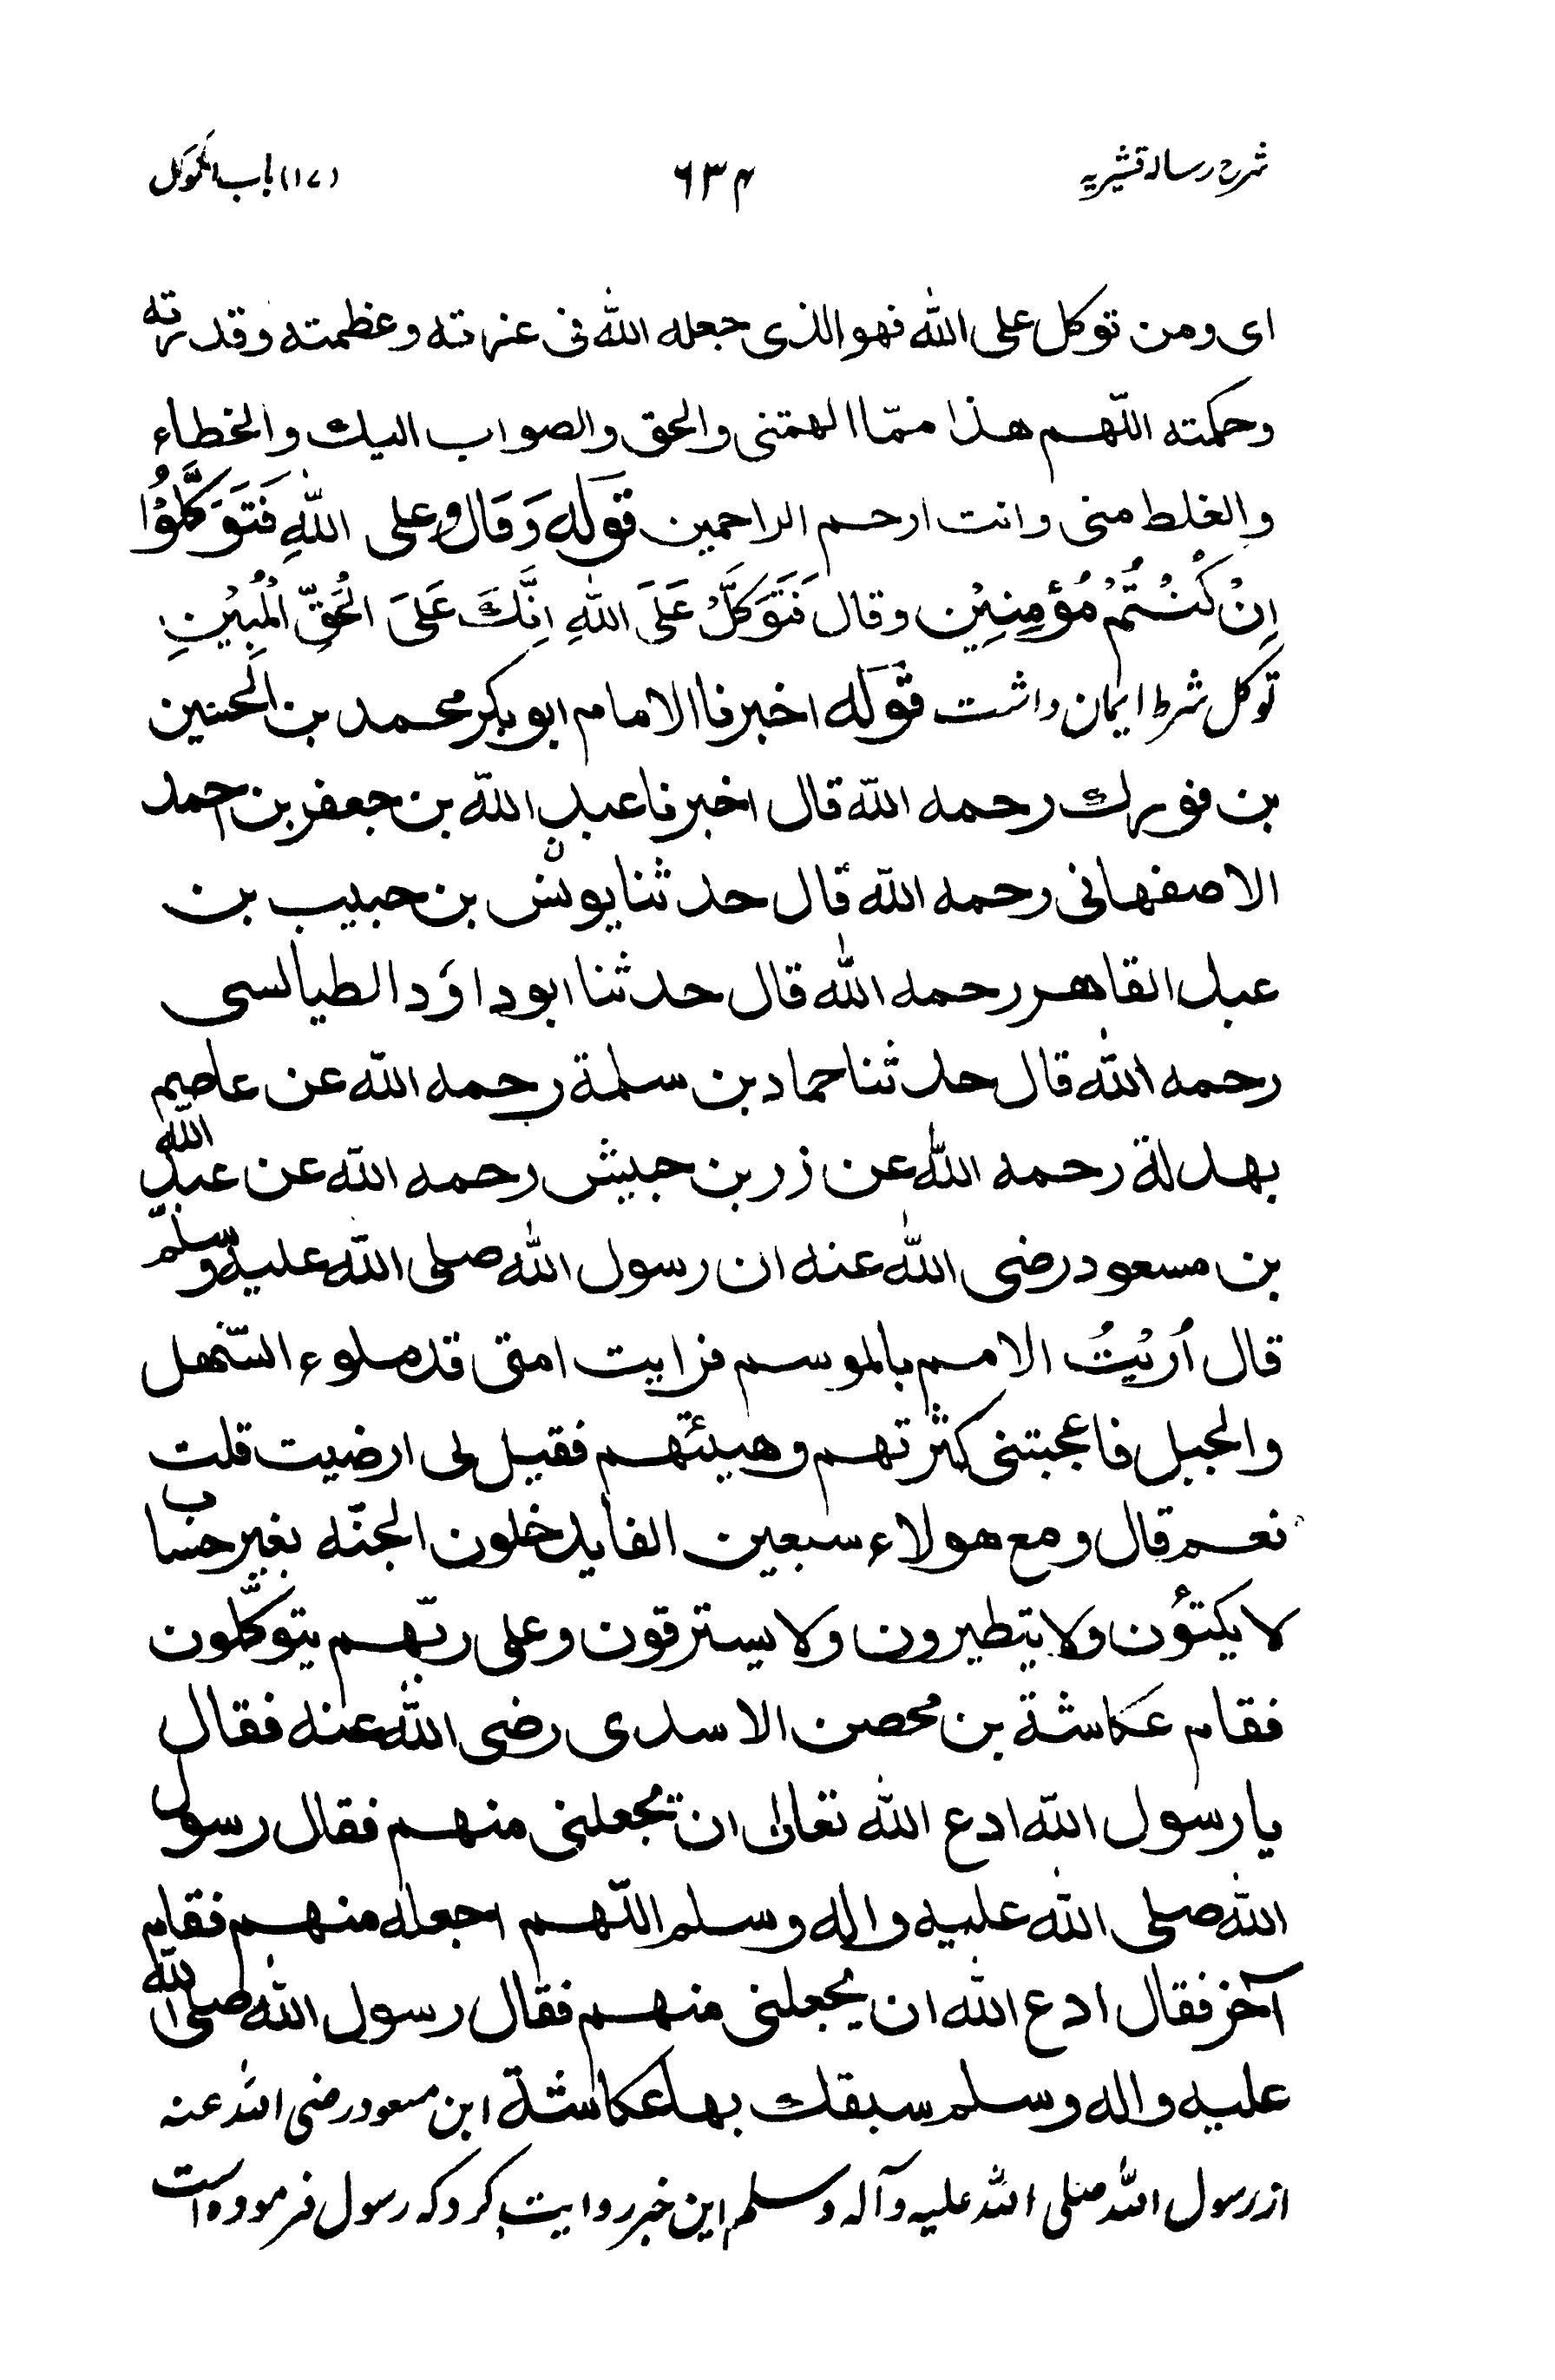 شرح رسالہ قشیریہ ۶۳۴ (۱۷) باب التوکل
ای ومن توکل علی الله فهو الذی جعله الله فی عزته وعظمته وقدرته
وحکمته اللّهم هذا ممّا الهمتنی والحق والصواب الیک والخطاء
والغلط منی وانت ارحم الراحمین قوله وَقَال وعلی اللّهِ فَتَوَکَّلُوْا
اِنْ کُنْتُمْ مُؤمِنِیْن وقال فَتَوَکَّلْ عَلَی اللّٰهِ اِنَّکَ عَلَی الْحَقِّ الْمُبِیْنِ
توکل شرط ایمان داشت قوله اخبرنا الامام ابوبکر محمد بن الحسین
بن فورک رحمه اللّه قال اخبرنا عبد اللّه بن جعفر بن احمد
الاصفهانی رحمه اللّه قال حدثنا یونس بن حبیب بن
عبد القاهر رحمه اللّٰه قال حدثنا ابوداؤد الطیالسی
رحمه اللّٰه قال حدثنا حماد بن سلمة رحمه اللّه عن عاصم
بهدلة رحمه اللّٰه عن زر بن حبیش رحمه اللّه عن عبد اللّه
بن مسعود رضی اللّٰه عنه ان رسول اللّٰه صلی اللّه علیه وسلم
قال اُرِیْتُ الامم بالموسم فرایت امتی قد ملوء السّهل
والجبل فاعجبتنی کثرتهم وهیئتهم فقیل لی ارضیت قلت
نعم قال ومع هولاء سبعین الفا یدخلون الجنّه بغیر حساب
لا یکتؤن ولا یتطیرون ولا یسترقون وعلی ربّهم یتوکّلون
فقام عکاشة بن محصن الاسدی رضی اللّٰه عنه فقال
یا رسول اللّه ادع اللّٰه تعالیٰ ان یجعلنی منهم فقال رسول
اللّٰه صلی اللّٰه علیه واله وسلم اللّهم اجعله منهم فقام
آخر فقال ادع اللّٰه ان یجعلنی منهم فقال رسول اللّٰه صلی اللّه
علیه واله وسلم سبقک بها عکاشة ابن مسعود رضی اللّٰه عنه
از رسول اللّٰه صلی اللّٰه علیه وآله وسلم این خبر روایت کرد که رسول فرموده است